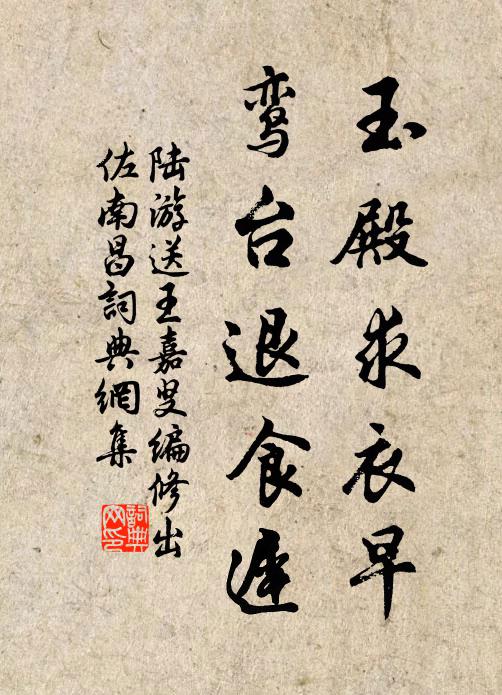 玉殿求衣早
鸾台退食遅
陆游送王嘉叟编修出
佐南昌詞典網集
詞典网印